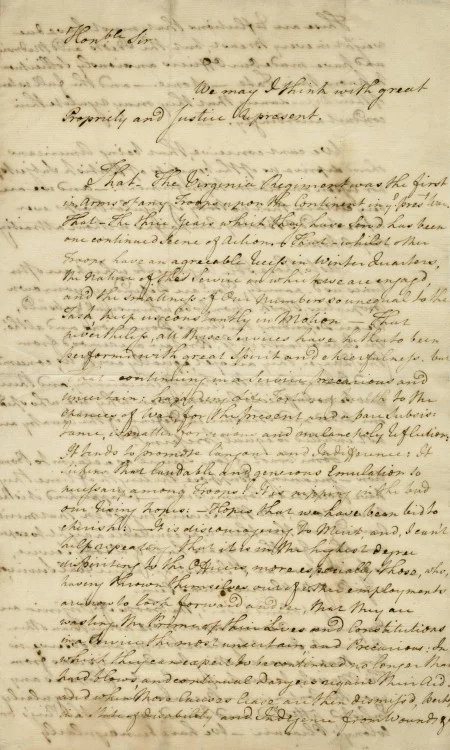 Honble Sir
We may I think with great
Propriety and Justice represent.
That The Virginia Regiment was the first
in arms of any Troops upon the Continent, in
That The three Years which they have Servd has been
one continued Scene of Action. That whilst other
Troops have an agreeable recess in Winter Quarters,
the Nature of the Service in which we are engagd,
and the smallness of Our Numbers so unequal to the
Task keep us constantly in Motion — That
nevertheless, all these Services have hitherto been
performd with great Spirit and cheerfulness, but
continuing in a Service precarious and
uncertain:
chances of War, for the present, and a bare Subsis-
tance, is matter for serious and melancholy reflection:
It tends to promote languor and Indifference: It
that laudable and generous Emulation so
necessary among Troops: It is nipping in the bud
our rising hopes: — Hopes that we have been led to
cherish: — It is discouraging to Merit, and, I can't
help repeating, that it is in the highest degree
dispiriting to the Officers, more especially those, who,
having thrown themselves out of other employments
are now to look forward and see, that they are
wasting the Prime of their Lives and Constitutions
in a Service the most uncertain, and Precarious: In
which they can expect to be continued no longer than
hard blows and continual Dangers require their Aid.
And when those Causes Cease, are then dismissd, perhaps
in a State of disability and Indigence from Wounds, &